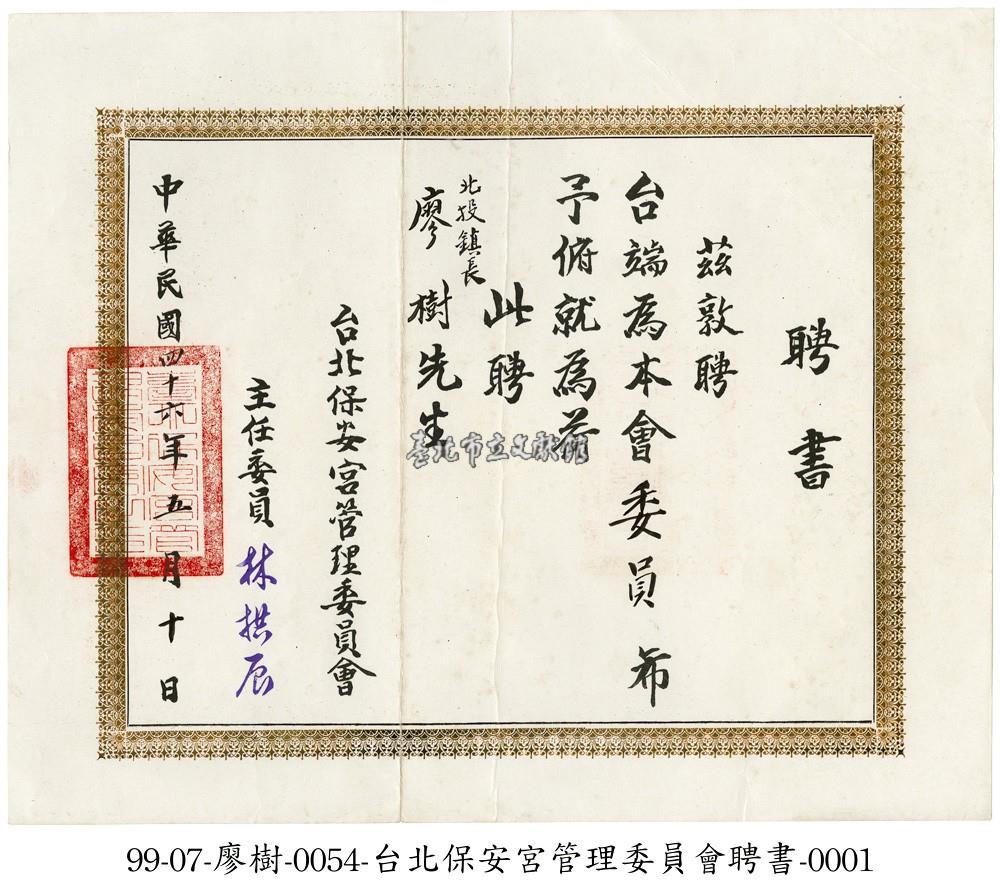 聘書
茲敦聘
台端為本會委員希
予俯就為荷
此聘
北投鎮長
廖樹先生
台北保安宮管理委員會
主任委員 林拱辰
中華民國四十六年五月十日
臺北市立文獻館
99-07-廖樹-0054-台北保安宮管理委員會聘書-0001